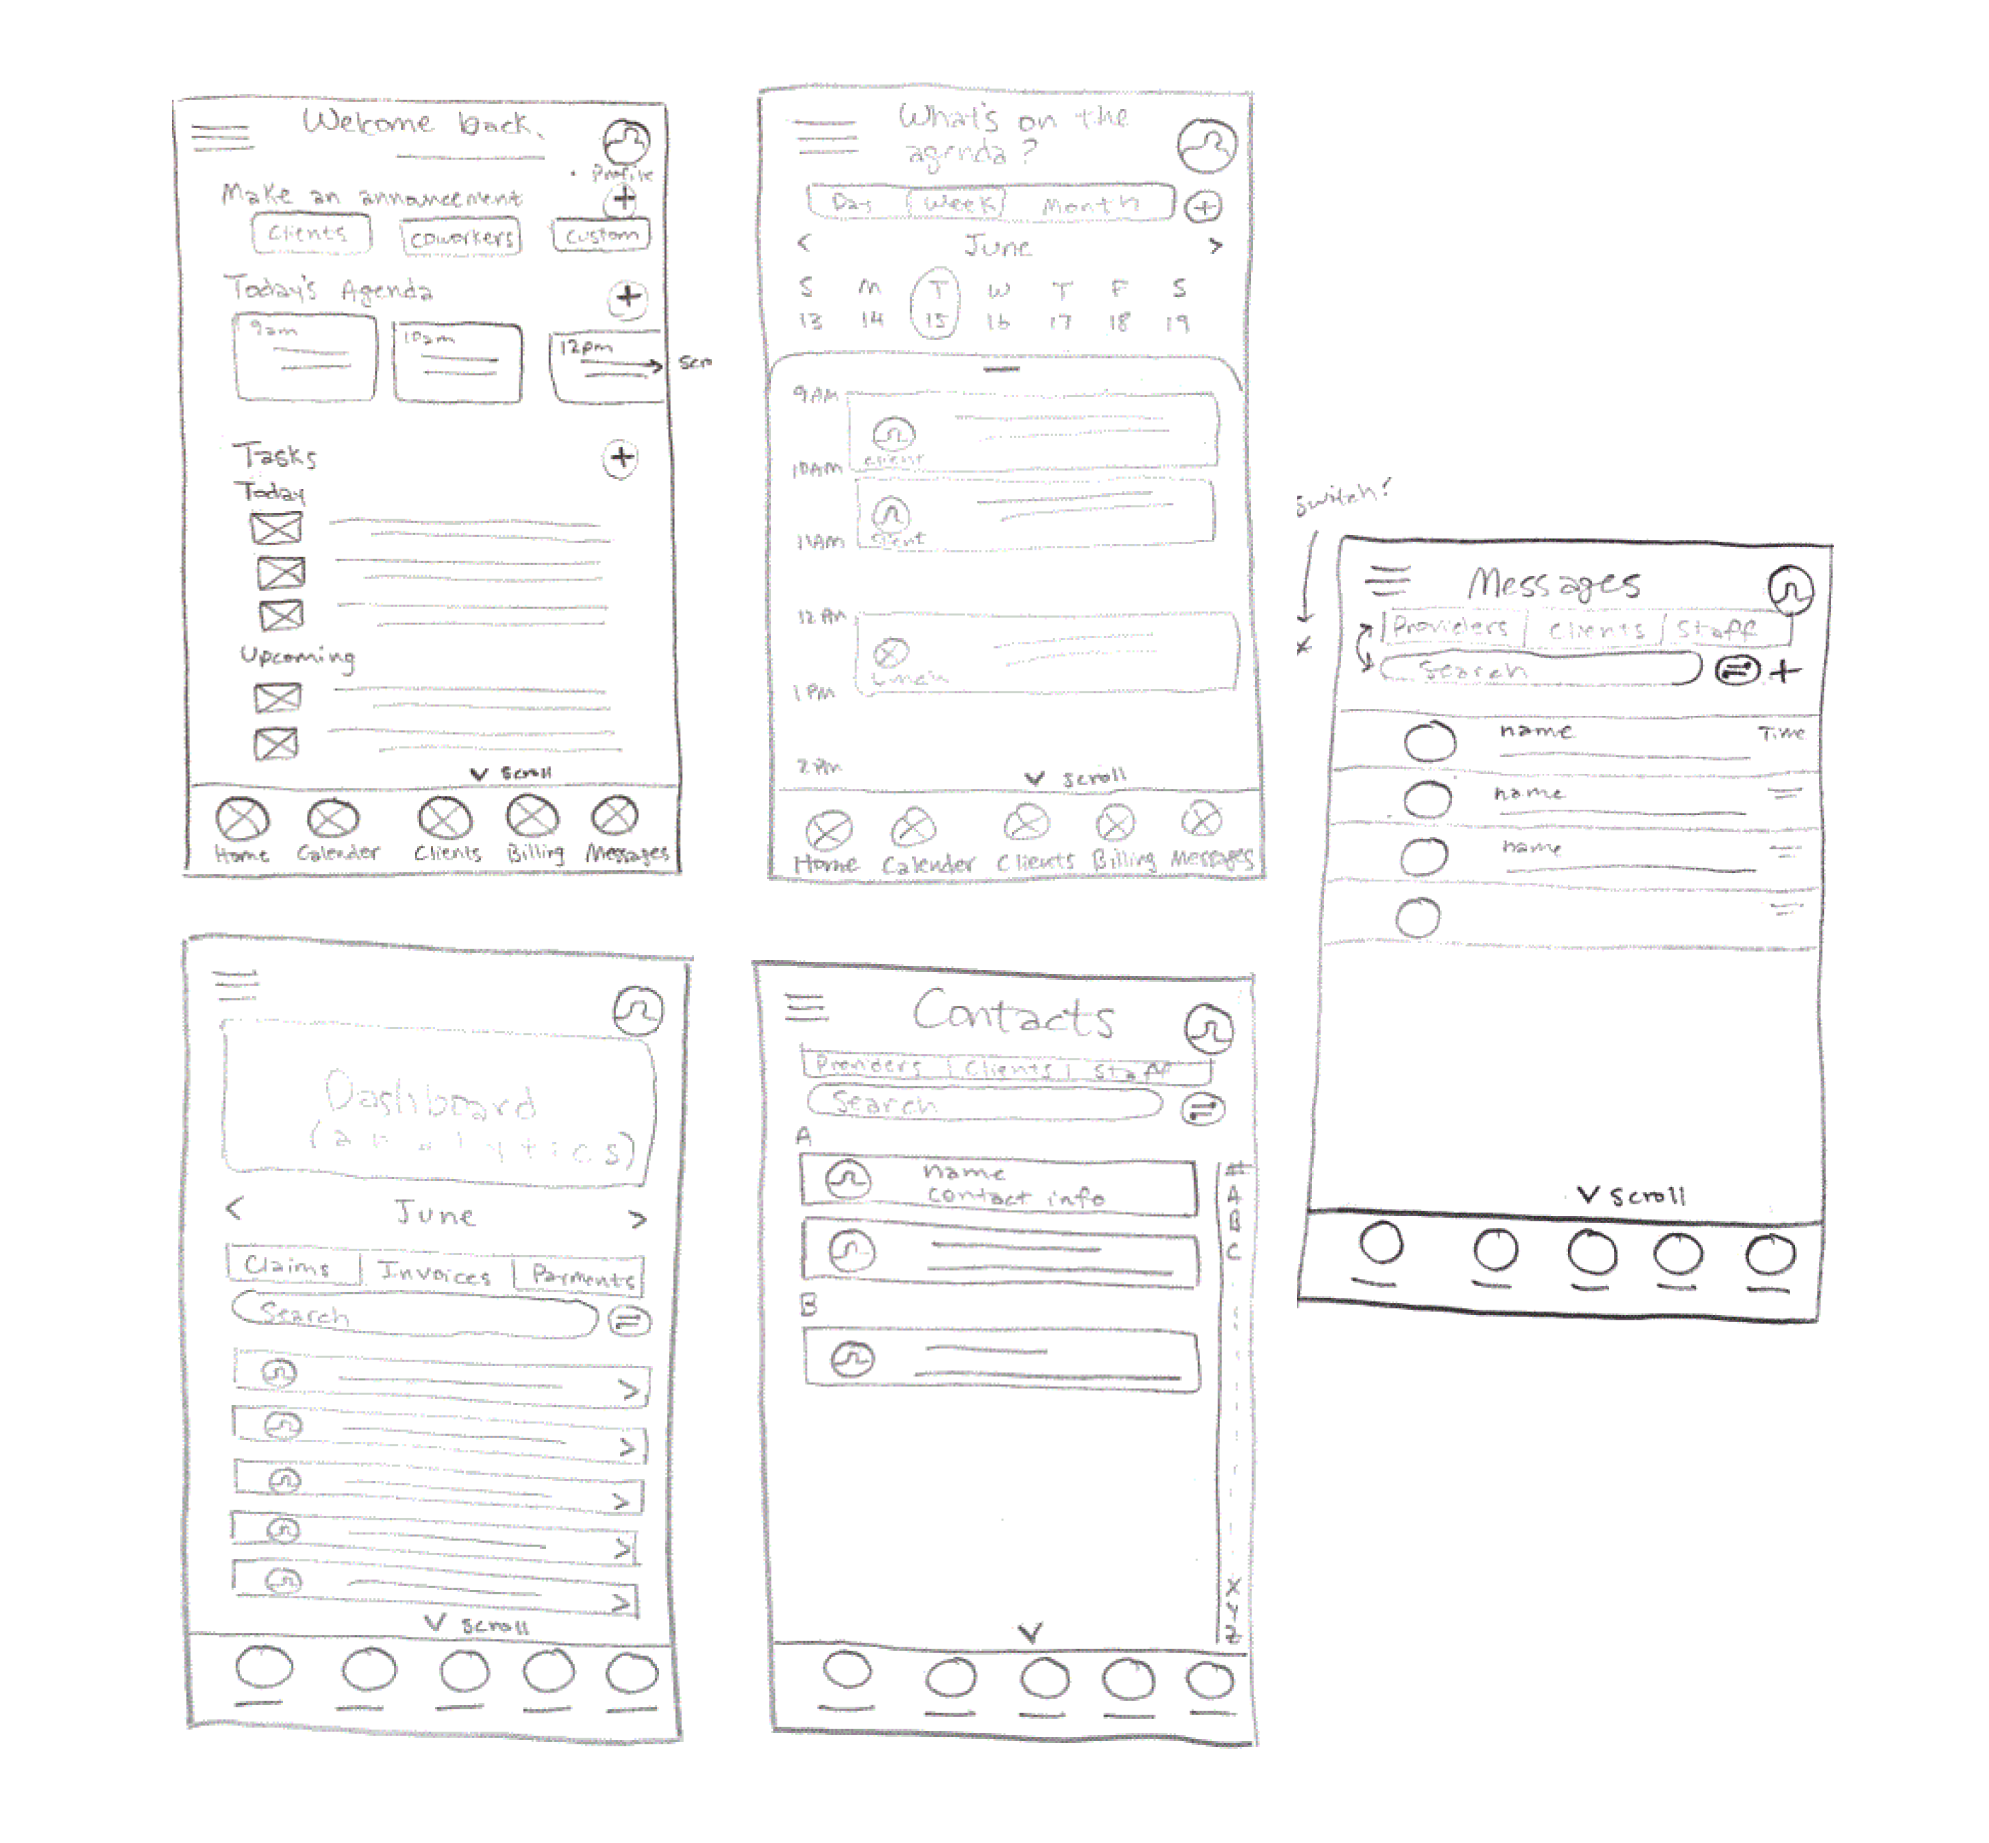 Welcome back,
Profile
Make an announcement
+
Clients
coworkers
custom
Today's Agenda
+
9am
10am
12pm
scr
Tasks
+
Today
Upcoming
scroll
Home
Calender
Clients
Billing
Messages
What's on the
agenda?
Day
Week
Month
+
<
June
>
S M T W T F S
13 14 15 16 17 18 19
9AM
client
10AM
client
11AM
12 AM
Lunch
1 PM
2 PM
scroll
Home
Calender
Clients
Billing
Messages
switch?
x
Messages
Providers
Clients
Staff
Search
+
name
Time
name
name
scroll
Dashboard
(analytics)
<
June
>
Claims
Invoices
Payments
Search
>
>
>
>
>
scroll
Contacts
Providers
Clients
Staff
Search
A
name
contact info
B
#
A
B
C
X
Y
Z